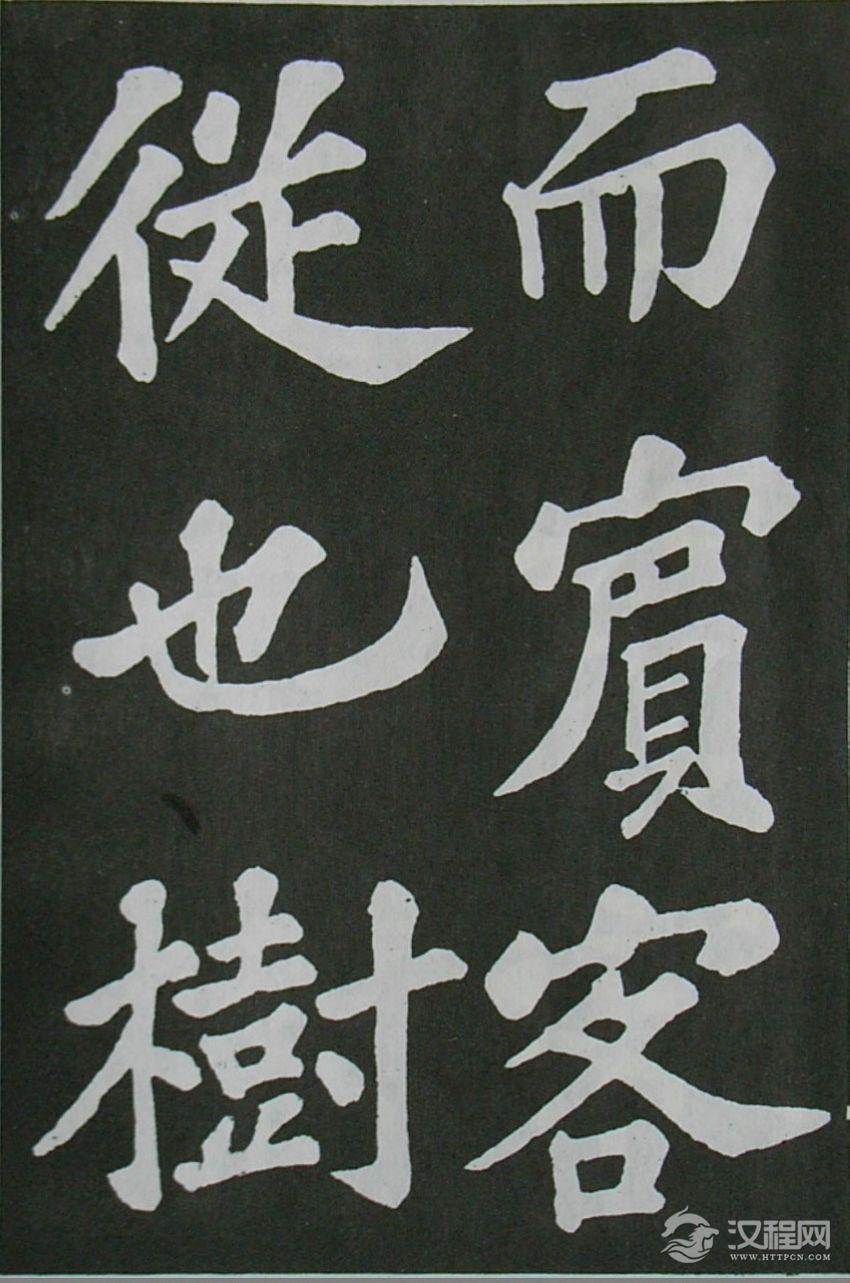 而賔客
従也樹
汉程网
WWW.HTTPCN.COM